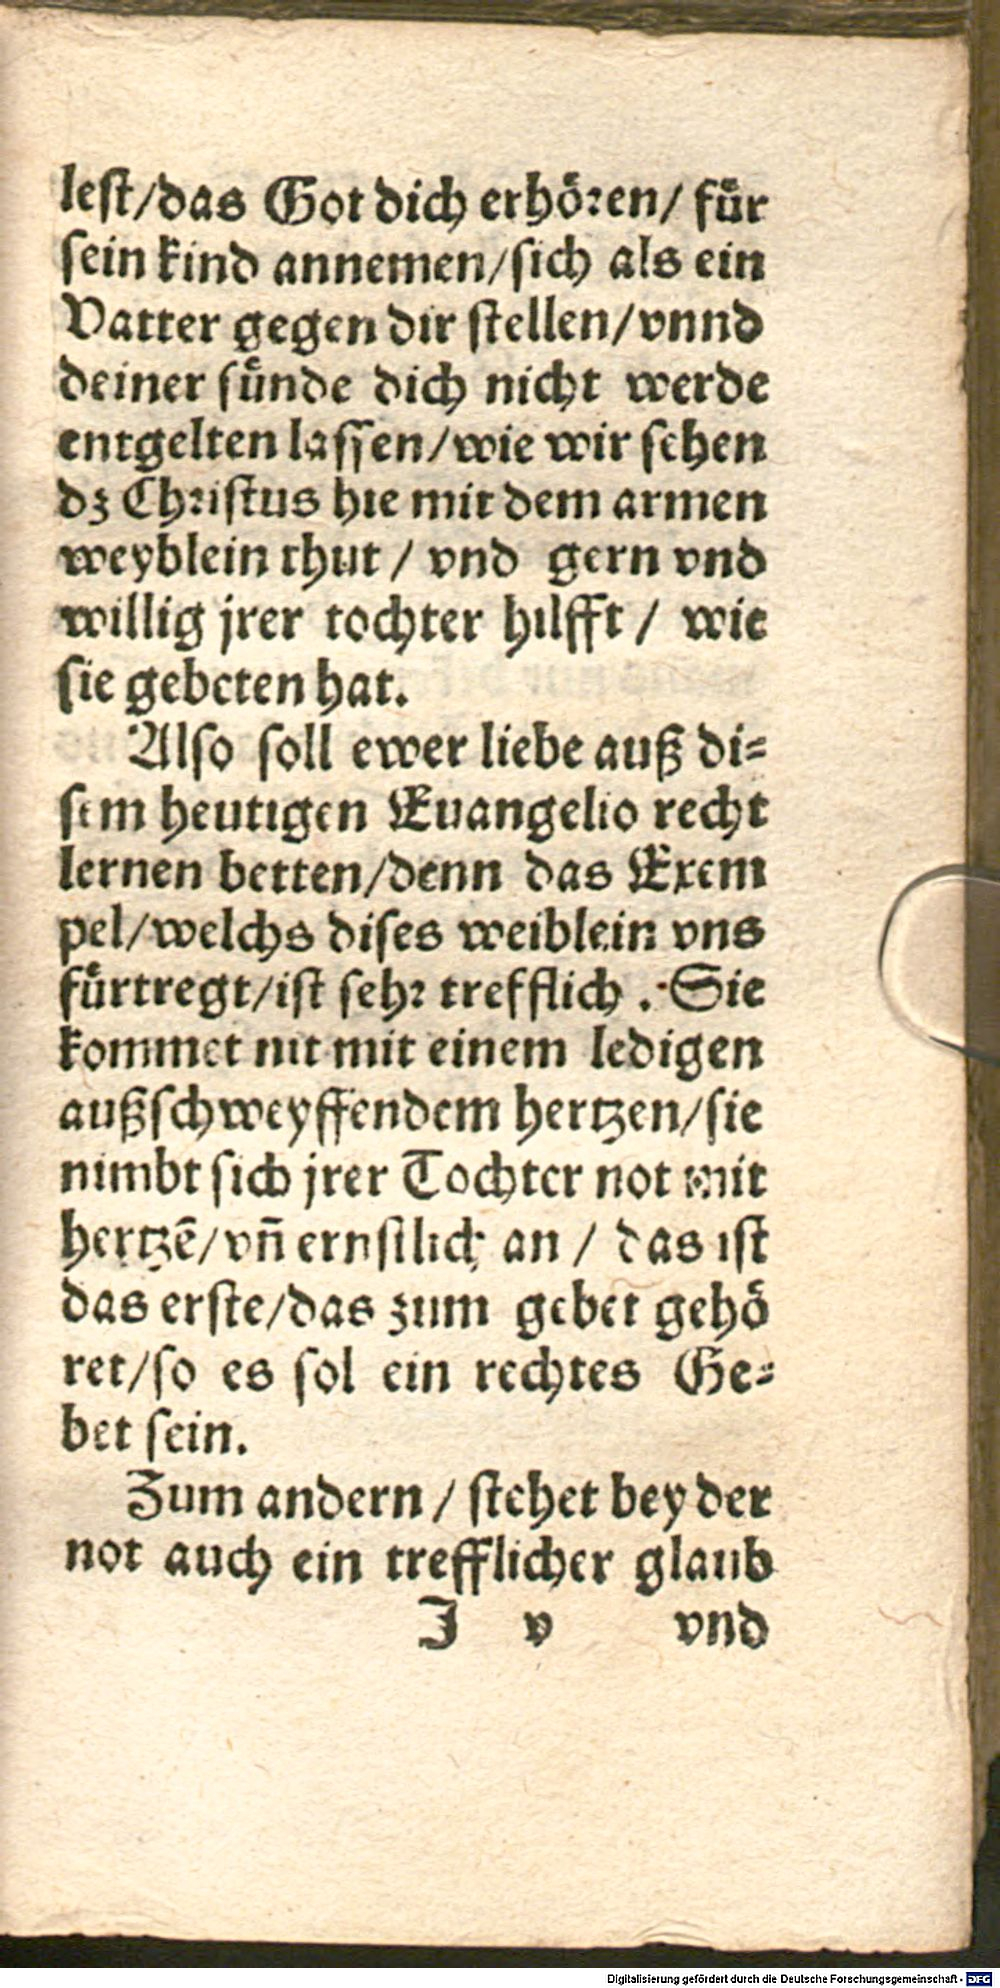 lest/das Got dich erhören/ für
sein kind annemen/sich als ein
Vatter gegen dir stellen/vnnd
deiner sünde dich nicht werde
entgelten lassen/wie wir sehen
dz Christus hie mit dem armen
weyblein thut / vnd gern vnd
willig jrer tochter hilfft / wie
sie gebeten hat.
Also soll ewer liebe auß di=
sem heutigen Euangelio recht
lernen betten/denn das Exem
pel/welchs dises weiblein vns
fürtregt/ist sehr trefflich . Sie
kommet nit mit einem ledigen
außschweyffendem hertzen/sie
nimbt sich jrer Tochter not mit
hertzẽ/vñ ernstlich an / das ist
das erste/das zum gebet gehö
ret/so es sol ein rechtes Ge=
bet sein.
Zum andern / stehet bey der
not auch ein trefflicher glaub
J v vnd
Digitalisierung gefördert durch die Deutsche Forschungsgemeinschaft - DFG